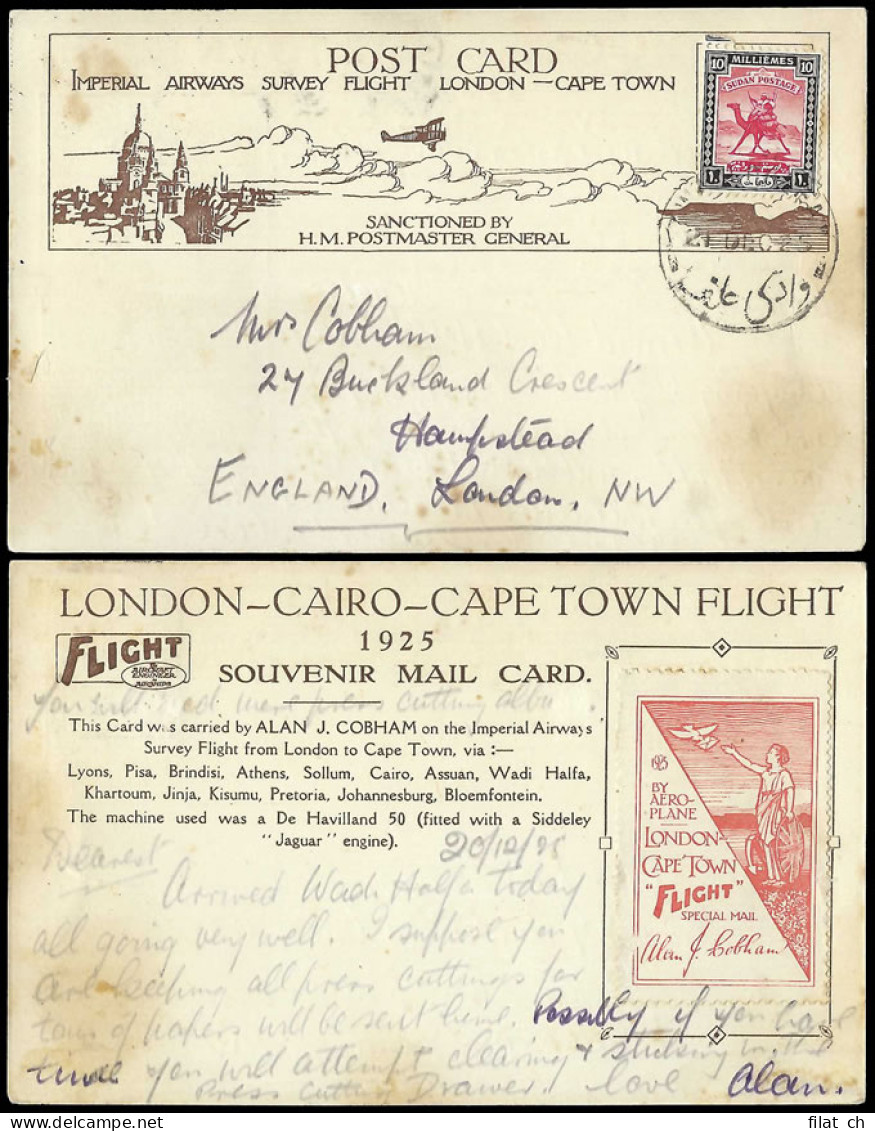 POST CARD
IMPERIAL AIRWAYS SURVEY FLIGHT LONDON – CAPE TOWN
10 MILLIÈMES 10
SUDAN POSTAGE
SANCTIONED BY
H.M. POSTMASTER GENERAL
21 DEC 25
وادي حلفا
Mrs Cobham
27 Buckland Crescent
Hampstead
ENGLAND, London, NW
LONDON–CAIRO–CAPE TOWN FLIGHT
1925
FLIGHT
AIRCRAFT
ENGINEER
& AIRSHIPS
SOUVENIR MAIL CARD.
You will need more press cutting
This Card was carried by ALAN J. COBHAM on the Imperial Airways
Survey Flight from London to Cape Town, via :—
Lyons, Pisa, Brindisi, Athens, Sollum, Cairo, Assuan, Wadi Halfa,
Khartoum, Jinja, Kisumu, Pretoria, Johannesburg, Bloemfontein.
The machine used was a De Havilland 50 (fitted with a Siddeley
"Jaguar" engine).
1925
BY
AERO-
PLANE
LONDON–
CAPE TOWN
"FLIGHT"
SPECIAL MAIL
Alan J. Cobham
20/12/25
Dearest
Arrived Wadi Halfa today
all going very well. I suppose you
are keeping all press cuttings for
of papers will be sent home. Possibly if you have
time you will attempt clearing & sticking in the
Press Cutting Drawer. love Alan.
filat ch